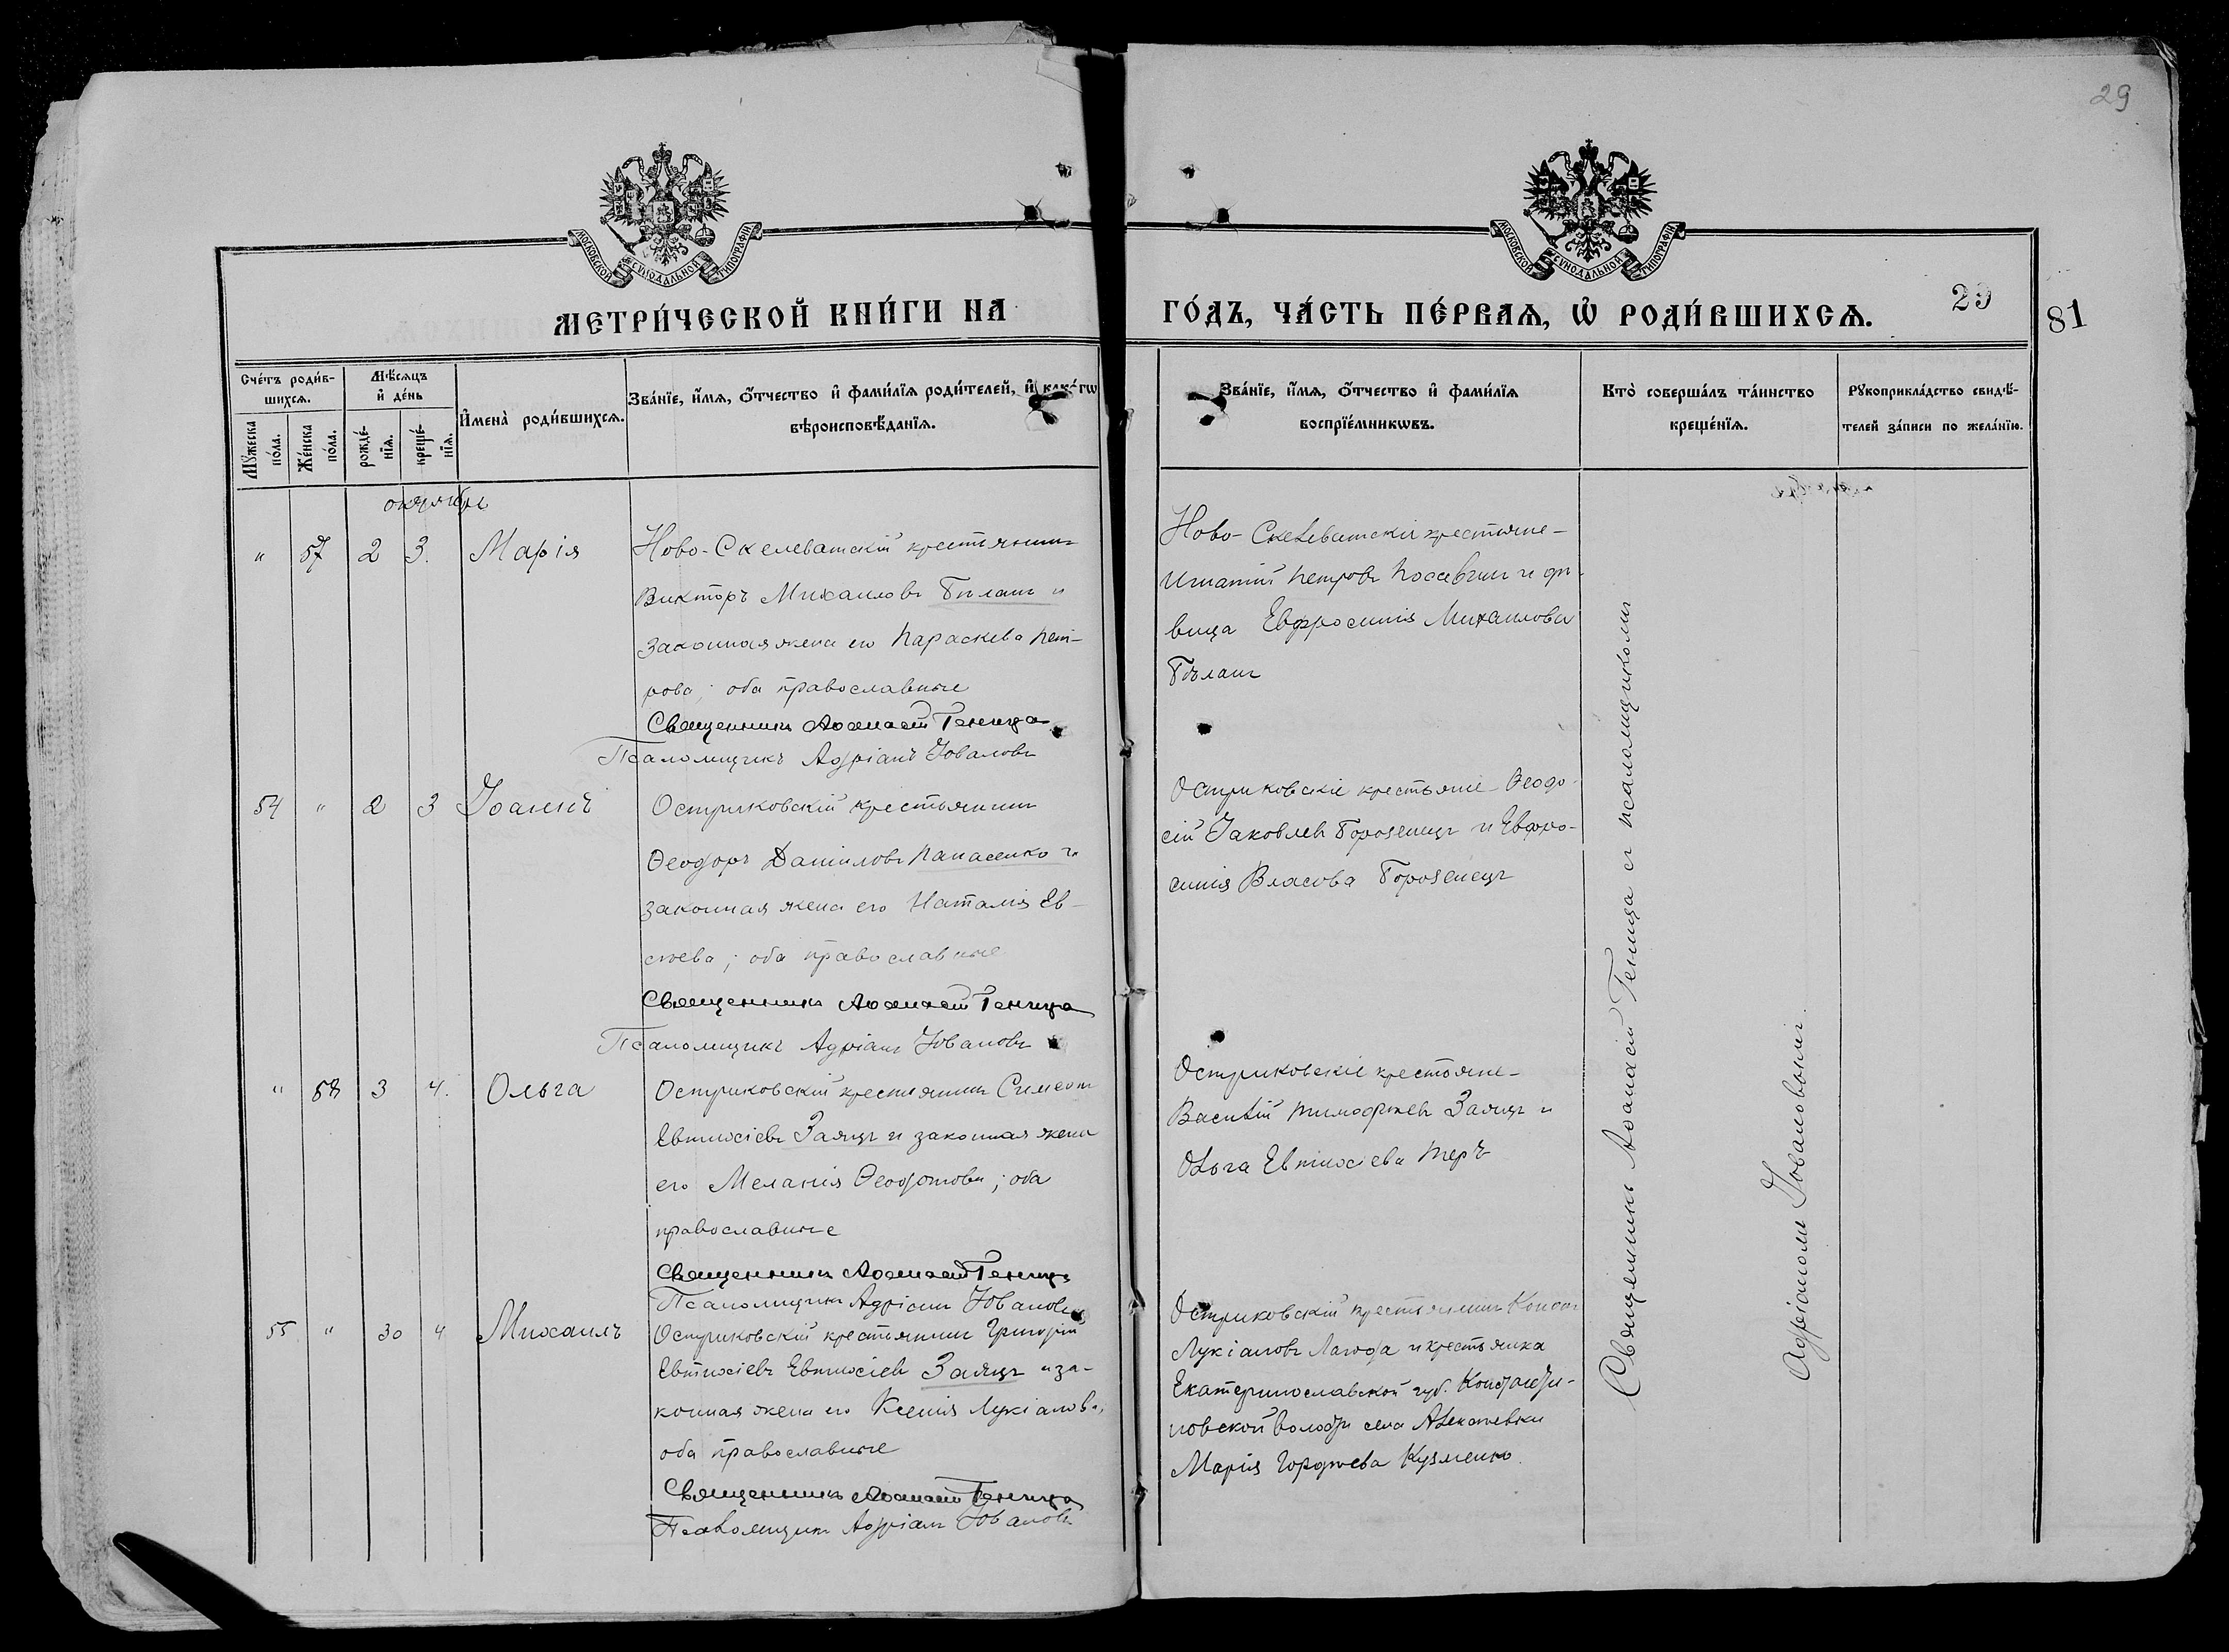 29
МОСКОВСКОЙ СѴНОДАЛЬНОЙ ТИПОГРАФІИ
МОСКОВСКОЙ СѴНОДАЛЬНОЙ ТИПОГРАФІИ
МЕТРИ́ЧЕСКОЙ КНИ́ГИ НА ГО́ДЪ, ЧА́СТЬ ПЕ́РВАѦ, Ѡ҆ РОДИ́ВШИХСѦ.
29
81
Сче́тъ роди́в-
шихсѧ.
Мꙋ́жеска по́ла.
Же́нска по́ла.
Мѣ́сѧцъ и҆ де́нь
рожде́-
нїѧ.
креще́-
нїѧ.
И҆мена̀ роди́вшихсѧ.
Зва́нїе, и҆́мѧ, ѻ҆́тчество и҆ фами́лїѧ роди́телей, и҆ како́гѡ
вѣроисповѣ́данїѧ.
Зва́нїе, и҆́мѧ, ѻ҆́тчество и҆ фами́лїѧ
воспрїе́мникѡвъ.
Кто̀ соверша́лъ та́инство
креще́нїѧ.
Рꙋкоприкла́дство свидѣ́-
телей за́писи по жела́нїю.
октябрь
" 57 2 3. Марія
Ново-Скелеватскій крестьянинъ
Викторъ Михаиловъ Бѣлашъ и
законная жена его Параскева Пет-
рова; оба православные
Священникъ Аѳанасій Геница
Псаломщикъ Адріанъ Іовановъ
Ново-Скелеватскіе крестьяне-
Игнатій Петровъ и дѣ-
вица Евфросинія Михаилова
Бѣлашъ
54 " 2 3 Іоаннъ
Остриковскій крестьянинъ
Ѳеодоръ Даніиловъ Панасенко и
законная жена его Наталія Ев-
сѣева; оба православные
Священникъ Аѳанасій Геница
Псаломщикъ Адріанъ Іовановъ
Остриковскіе крестьяне-Ѳеодо-
сій Іаковлевъ Борозенецъ и Евфро-
синія Власова Борозенецъ
" 58 3 4. Ольга
Остриковскій крестьянинъ Симеонъ
Евтихіевъ Заяцъ и законная жена
его Меланія Ѳеодотова; оба
православные
Священникъ Аѳанасій Геница
Псаломщикъ Адріанъ Іовановъ
Остриковскіе крестьяне-
Василій Тимофѣевъ Заяцъ и
Ольга Евтихіева
55 " 30 4 Михаилъ
Остриковскій крестьянинъ Григорій
Евтихіевъ Евтихіевъ Заяцъ и за-
конная жена его Ксенія Лукіанова,
оба православные
Священникъ Аѳанасій Геница
Псаломщикъ Адріанъ Іовановъ
Остриковскій крестьянинъ
Лукіановъ Лагода и крестьянка
Екатеринославской губ. Константи-
новской волости села Алексѣевки
Марія Гордѣева Кузменко.
Священникъ Аѳанасій Геница съ псаломщикомъ
Адріаномъ Іовановымъ.